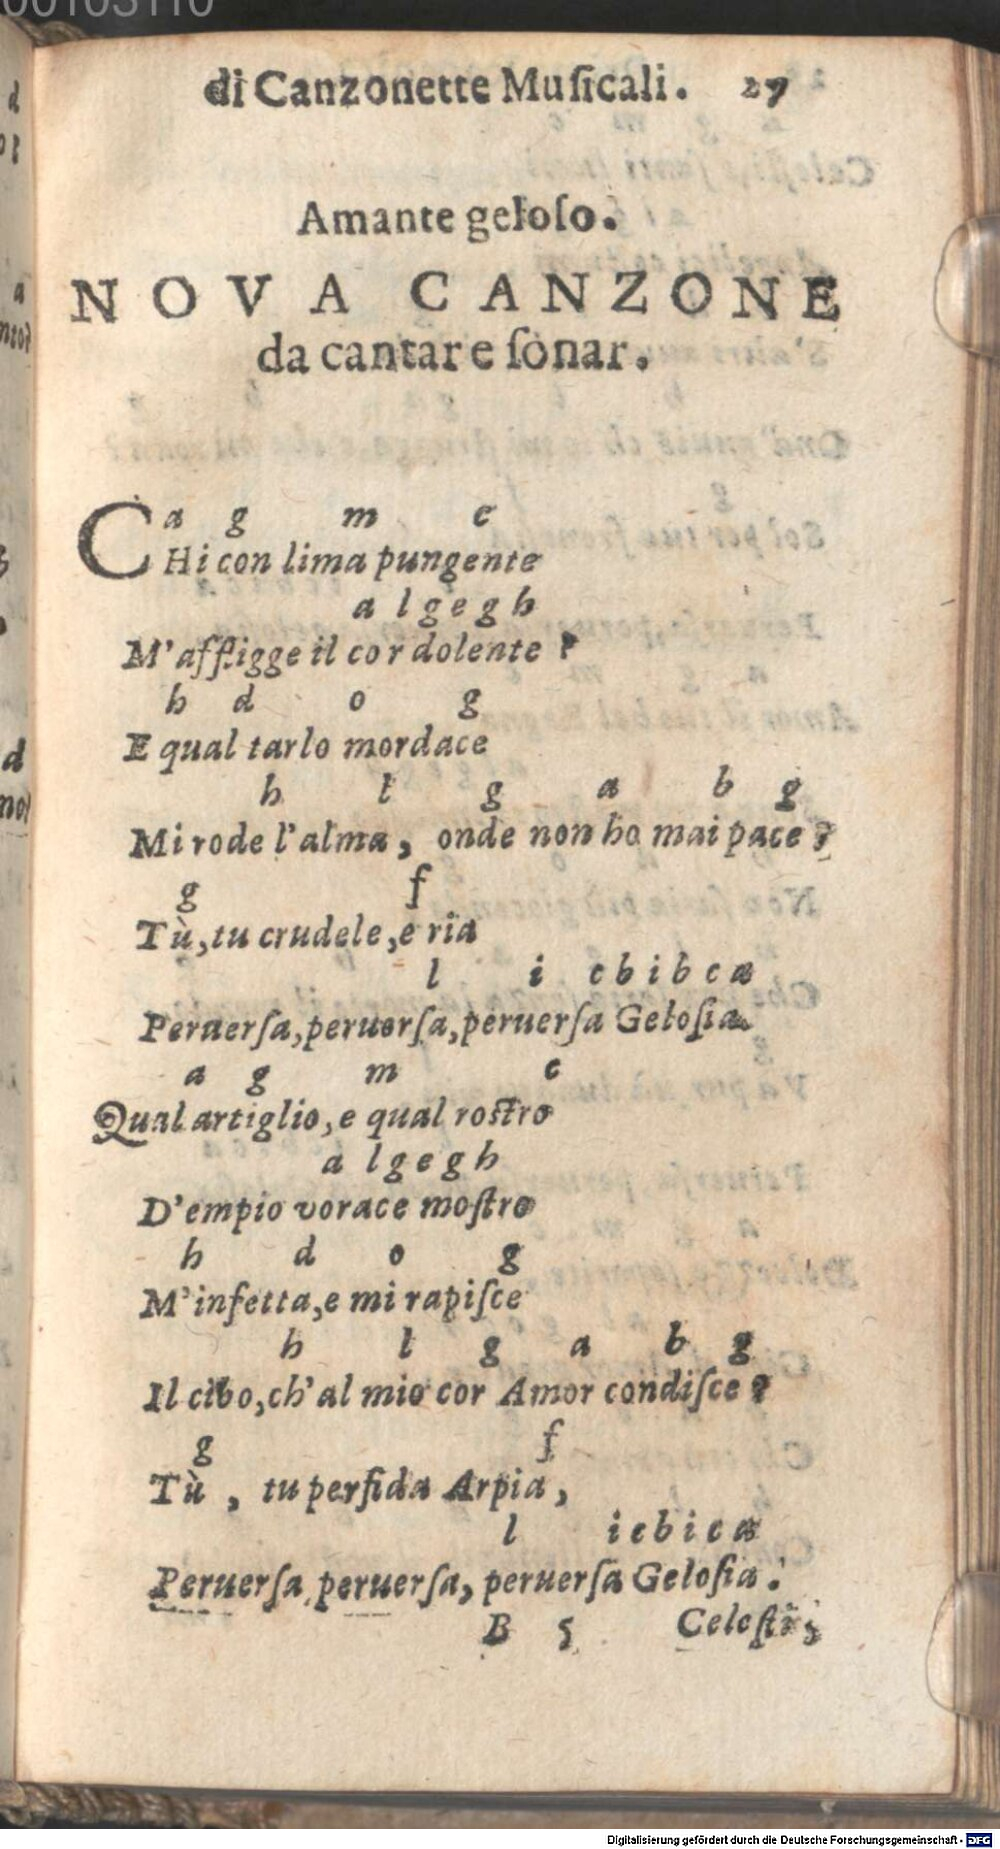 di Canzonette Muſicali. 27
Amante geloſo.
NOVA CANZONE
da cantar e ſonar.
a g m e
CHi con lima pungente
a l g e g h
M'affligge il cor dolente?
h d o g
E qual tarlo mordace
h l g a b g
Mi rode l'alma, onde non ho mai pace?
g f
Tù, tu crudele, e ria
l i c b i b c a
Peruerſa, peruerſa, peruerſa Geloſia.
a g m c
Qual artiglio, e qual roſtro
a l g e g h
D'empio vorace moſtro
h d o g
M'infetta, e mi rapiſce
h l g a b g
Il cibo, ch'al mio cor Amor condiſce?
g f
Tù, tu perfida Arpia,
l i c b i c a
Peruerſa, peruerſa, peruerſa Geloſia.
B 5 Celeſti,
Digitalisierung gefördert durch die Deutsche Forschungsgemeinschaft - DFG